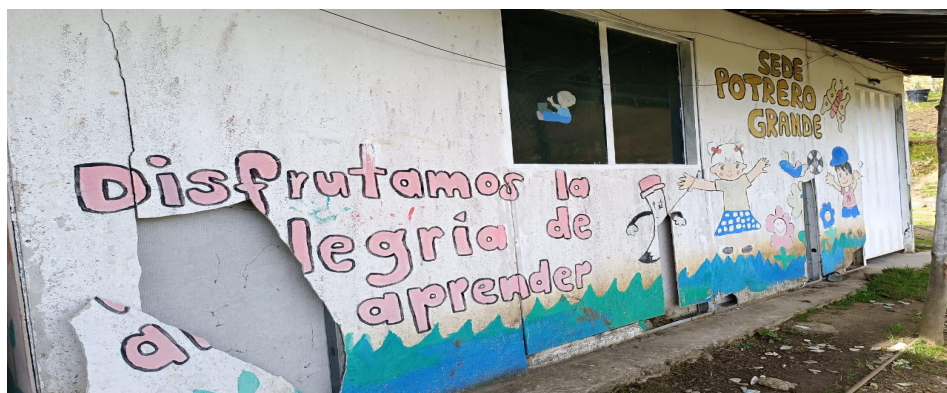 Disfrutamos la
legría de
aprender
a
SEDE
POTRERO
GRANDE